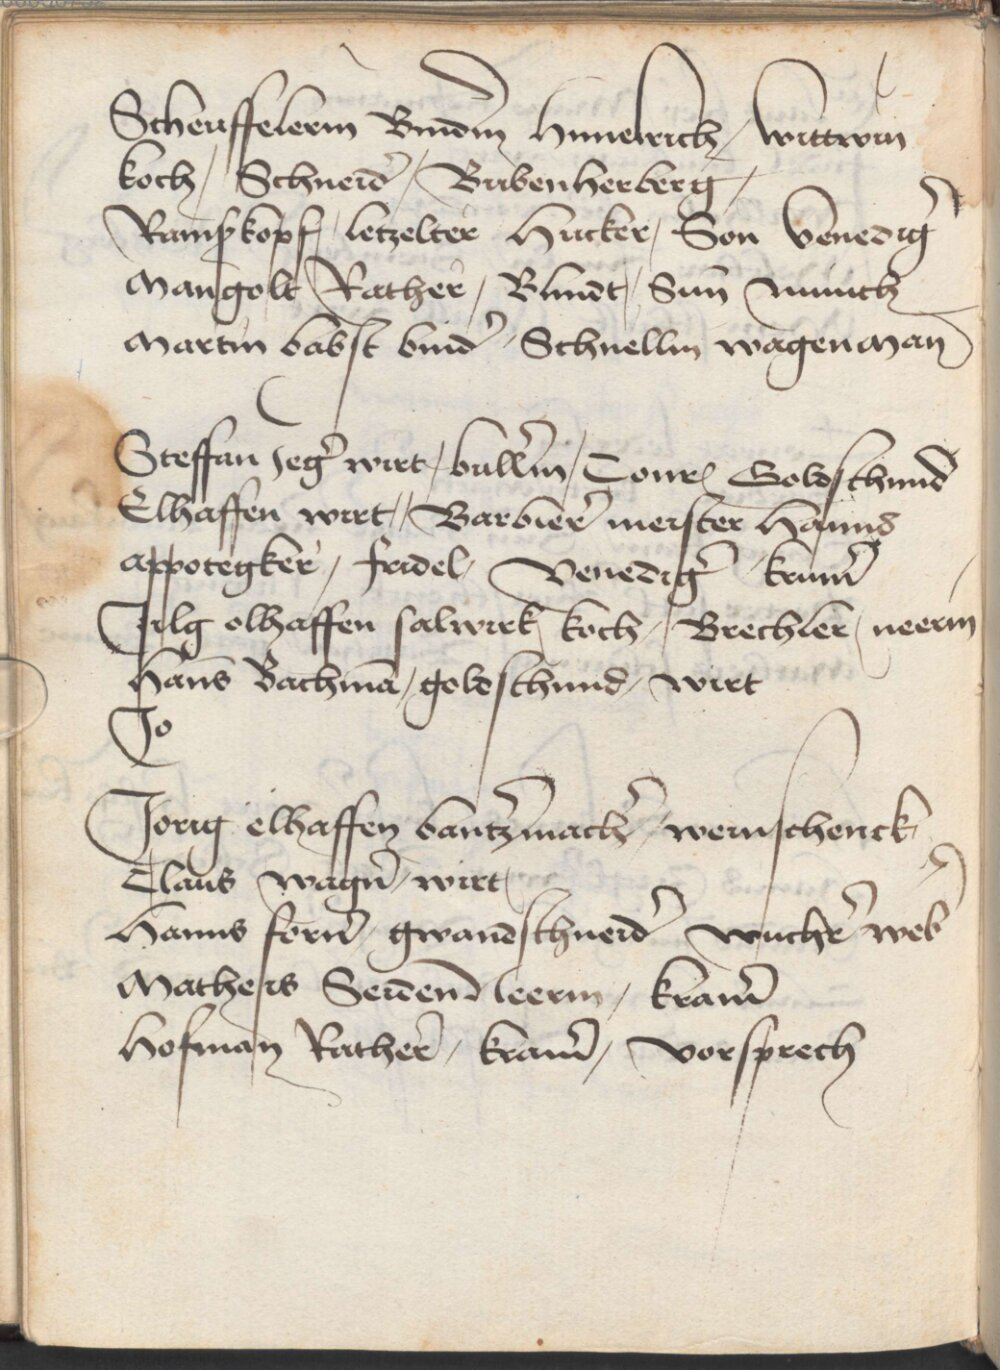 Scheuffelerin Bindin Himelrich / wittwin
koch / Schneid' / Bubenherberg /
Rampßkopf / letzelter Hucker / Son Venedig'
Mangolt Rather / Blindt / Sun munch
Martin babst bind' Schnellin wagenman
Steffan Jeg' wirt / Goldschmid
Elhaffen wirt // Barbierer meister Hanns
appotegker / fridel / Venedig' kram'
Jilg elhaffen salwirk / koch / Brechler / neerin
Hanns Bachman / goldschmid / wirt
Jo
Jorig elhaffen bantzermach' / weinschenck
Claus wagn' / wirt
Hanns forn' / gwandschneid' web'
Matheis Seidennleerin / kram'
Hofman Rather / kram' / vorsprech